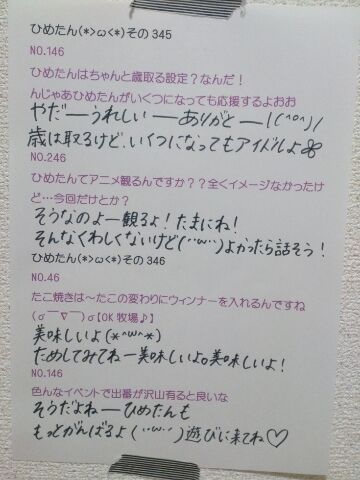 ひめたん(*>ω<*)その345
NO.146
ひめたんはちゃんと歳取る設定？なんだ！
んじゃあひめたんがいくつになっても応援するよおお
やだーうれしいーありがとー！(^o^)/
歳は取るけど、いくつになってもアイドルよ
NO.246
ひめたんてアニメ観るんですか？？全くイメージなかったけ
ど…今回だけとか？
そうなのよー観るよ！たまにね！
そんなくわしくないけど(¨ω¨)よかったら話そう！
ひめたん(*>ω<*)その346
NO.46
たこ焼きは～たこの変わりにウィンナーを入れるんですね
(σ￣∇￣)σ【OK牧場♪】
美味しいよ(*^ω^*)
ためしてみてねー美味しいよ。美味しいよ！
NO.146
色んなイベントで出番が沢山有ると良いな
そうだよねーひめたんも
もっとがんばるよ(¨ω¨)遊びに来てね♡